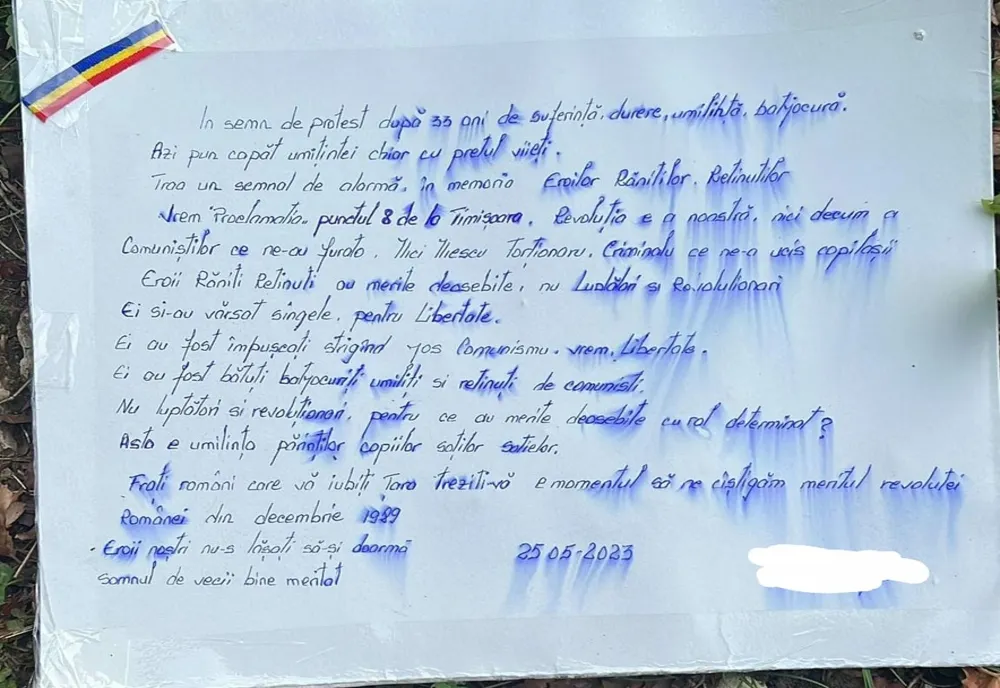 In semn de protest după 33 ani de suferință, durere, umilință, batjocură.
Azi pun capăt umilintei chiar cu pretul viieți.
Trag un semnal de alarmă, în memoria Eroilor Răniților, Retinutilor
Vrem Proclamatia, punctul 8 de la Timișoara. Revoluția e a noastră, nici decum a
Comuniștilor ce ne-au furato. Ilici Iliescu Torționaru, Criminalu ce ne-a ucis copilașii
Eroii Răniti Retinuti au merite deosebite, nu Luptători si Revolutionari
Ei si-au vărsat sîngele, pentru Libertate.
Ei au fost împuscați strigînd jos Comunismu. vrem, Libertate.
Ei au fost bătuți batjocuriți umiliți si retinuți de comunisti.
Nu luptători si revoluționari, pentru ce au merite deosebite cu rol determinat?
Asta e umilința părinților copiilor sotilor sotielor.
Frați români care vă iubiți Tara treziti-vă e momentul să ne cîștigăm meritul revolutei
Românei din decembrie 1989
. Eroii noștri nu-s lăsați să-și doarmă
somnul de vecii bine meritat
25 05-2023